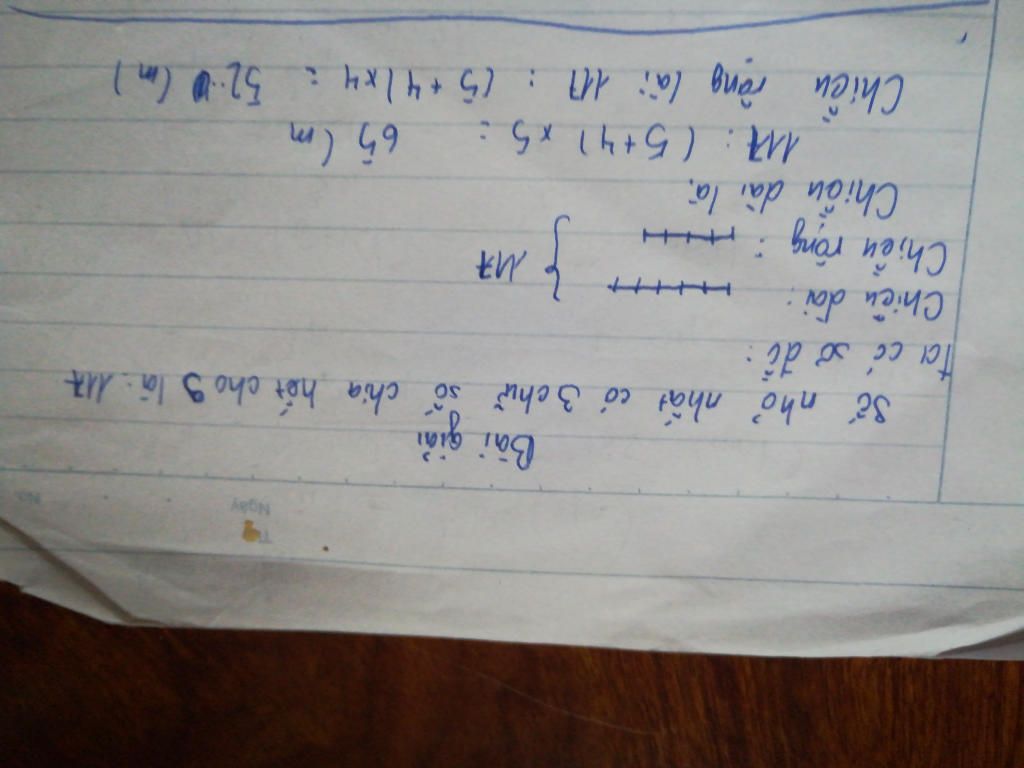 No.
Ngày
Bài giải
Số nhỏ nhất có 3 chữ số chia hết cho 9 là: 117
Ta có sơ đồ:
Chiều dài:
117
Chiều rộng:
Chiều dài là:
117 : (5+4) x 5 = 65 (m
Chiều rộng là: 117 : (5+4) x 4 = 52 (m)